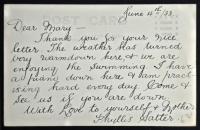 June 4th/33.
Dear Mary—
Thank you for your nice
letter. The weather has turned
very warm down here, & we are
enjoying the swimming. I have
a piano down here & am prac-
tising hard every day. Come &
see us if you are down.
With Love to yourself & Mother
Phyllis